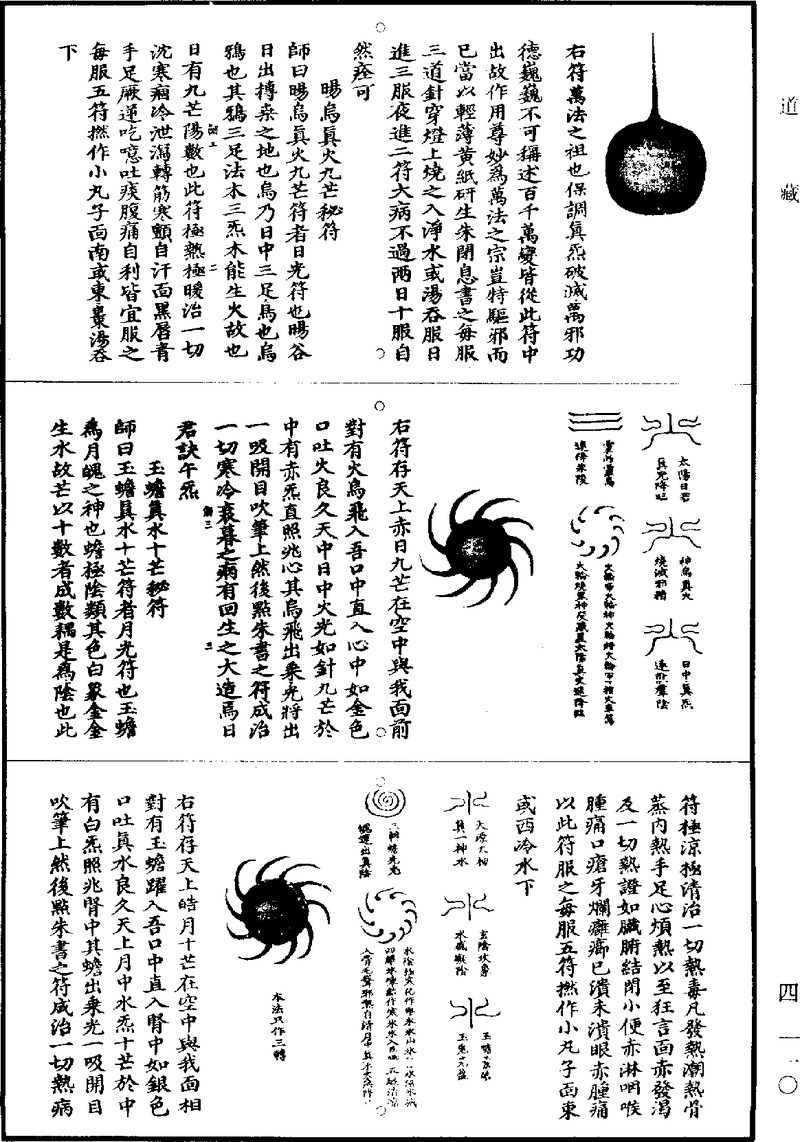 道藏
四—一〇
右符萬法之祖也保調真炁破滅萬邪功
德巍巍不可稱述百千萬變皆從此符中
出故作用尊妙為萬法之宗豈特驅邪而
已當以輕薄黃紙研生朱閉息書之每服
三道針穿燈上燒之入淨水或湯吞服日
進三服夜進二符大病不過兩日十服自
然痊可
暘烏真火九芒秘符
師曰暘烏真火九芒符者日光符也暘谷
日出搏桑之地也烏乃日中三足烏也烏
鴉也其鴉三足法木三炁木能生火故也
日有九芒陽數也此符極熱極暖治一切
沈寒痼冷泄瀉轉筋寒顫自汗面黑唇青
手足厥逆吃噫吐痰腹痛自利皆宜服之
每服五符撚作小丸子面南或東棗湯吞
下
太陽日君
真光降臨
神烏真火
燒滅邪精
日中真炁
速照羣陰
右符存天上赤日九芒在空中與我面前
對有火烏飛入吾口中直入心中如金色
口吐火良久天中日中火光如針九芒於
中有赤炁直照兆心其烏飛出乘光將出
一吸開目吹筆上然後點朱書之符成治
一切寒冷衰暮之病有回生之大造焉日
君訣午炁
玉蟾真水十芒秘符
師曰玉蟾真水十芒符者月光符也玉蟾
為月魄之神也蟾極陰類其色白象金金
生水故芒以十數者成數耦是為陰也此
符極涼極清治一切熱毒凡發熱潮熱骨
蒸內熱手足心煩熱以至狂言面赤發渴
及一切熱證如臟腑結閉小便赤淋咽喉
腫痛口瘡牙爛癰癤已潰未潰眼赤腫痛
以此符服之每服五符撚作小丸子面東
或西冷水下
真一神水
玄陰坎象
本法只作三轉
右符存天上皓月十芒在空中與我面相
對有玉蟾躍入吾口中直入腎中如銀色
口吐真水良久天上月中水炁十芒於中
有白炁照兆腎中其蟾出乘光一吸開目
吹筆上然後點朱書之符成治一切熱病